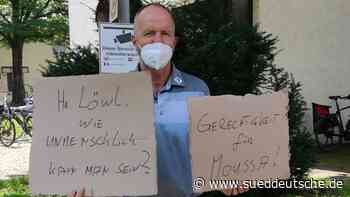 Hr Löwl,
WIE
UNMENSCHLICH
KANN MAN SEIN?
GERECHTIGKEIT
für
MOUSSA!
© www.sueddeutsche.de